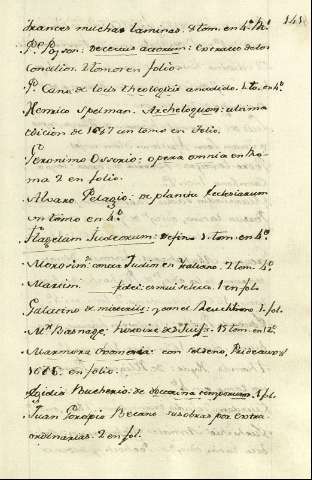 141
frances muchas laminas. 8 tom. en 4º
Pº : decretis : extracto de los
Concilios. 2 tomos en folio.
Pº Cano de locis theologicis anadido. 1 to. en 4º
Henrico Spelman. Archeloguon: ultima
edicion de un tomo en folio.
Geronimo Ossorio: opera omnia en Ro-
ma 2 en folio.
Alvaro Pelagio: de planctu Ecclesiarum
un tomo en 4º
Flagelum Judeorum: 1 tom. en 4º
contra Judios en Italiano. 2 tom. 4º
Martin. 1 en fol.
Galatino de y con el Reuchlino 1. fol.
Mr Basnage: histoire des Juifs. 15 tom. en 12º
Marmora Oxoniensia: con Seldeno, Prideaux
en folio.
Egidio Bucherio: de doctrina temporum. 1. fol.
Juan Goropio Becano sus obras por extra
ordinarias. 2 en fol.